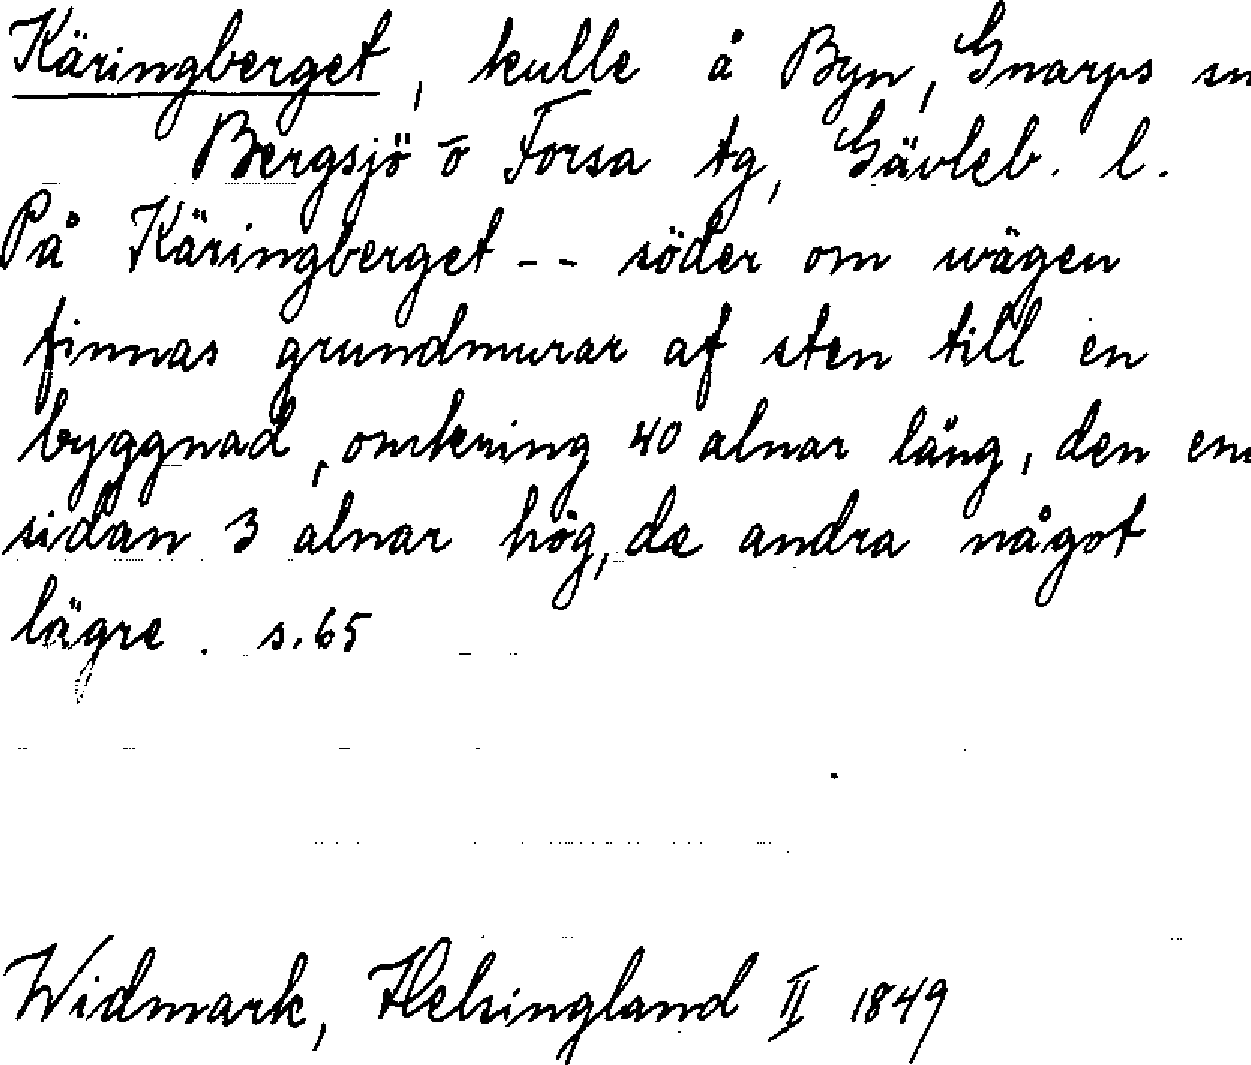 Käringberget, kulle å Byn, Gnarps sn
Bergsjö o Forsa tg, Gävleb. l.
På Käringberget -- söder om wägen
finnas grundmurar af sten till en
byggnad, omkring 40 alnar lång, den ena
sidan 3 alnar hög, de andra något
lägre. s. 65
Widmark, Helsingland II 1849